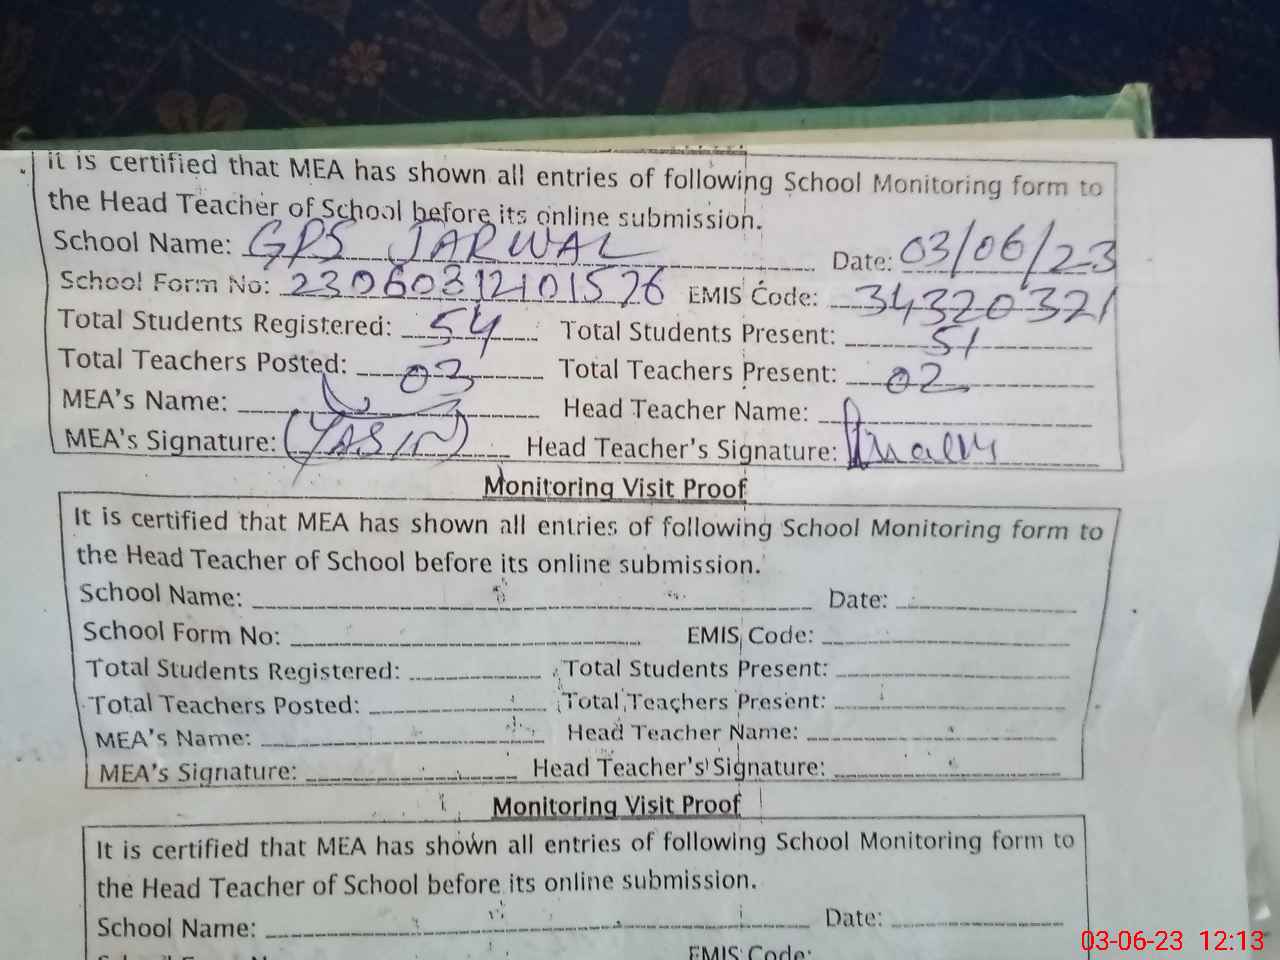 it is certified that MEA has shown all entries of following School Monitoring form to
the Head Teacher of School before its online submission.
School Name: GPS JARWAL Date: 03/06/23
School Form No: 23060312101576 EMIS Code: 34320321
Total Students Registered: 54 Total Students Present: 51
Total Teachers Posted: 03 Total Teachers Present: 02
MEA's Name: Head Teacher Name:
MEA's Signature: (YASIN) Head Teacher's Signature:
Monitoring Visit Proof
It is certified that MEA has shown all entries of following School Monitoring form to
the Head Teacher of School before its online submission.
School Name: Date:
School Form No: EMIS Code:
Total Students Registered: Total Students Present:
Total Teachers Posted: Total Teachers Present:
MEA's Name: Head Teacher Name:
MEA's Signature: Head Teacher's Signature:
Monitoring Visit Proof
It is certified that MEA has shown all entries of following School Monitoring form to
the Head Teacher of School before its online submission.
School Name: Date:
EMIS Code:
03-06-23 12:13